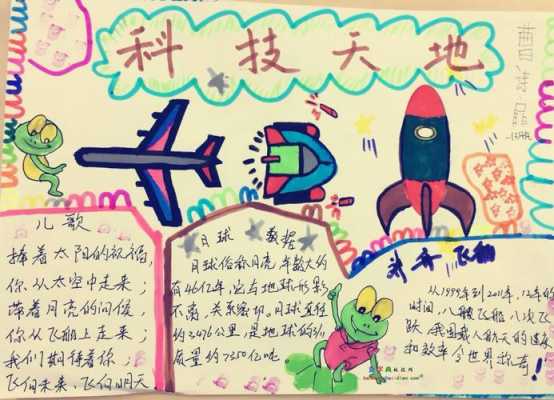 科技天地
儿歌
捧着太阳的祝福,
你从太空中走来;
带着月亮的问候,
你从飞船上走来;
我们期待着你;
飞向未来、飞向明天
月球 数据
月球俗称月亮,年龄大约
有46亿年,它与地球形影
不离,关系密切,月球直径
约3476公里,是地球的3/11
质量约7350亿吨
神舟飞船
从1999年到2011年,12年的
时间,八艘飞船,八次飞
跃,我国载人航天的速度
和效率令世界惊奇!